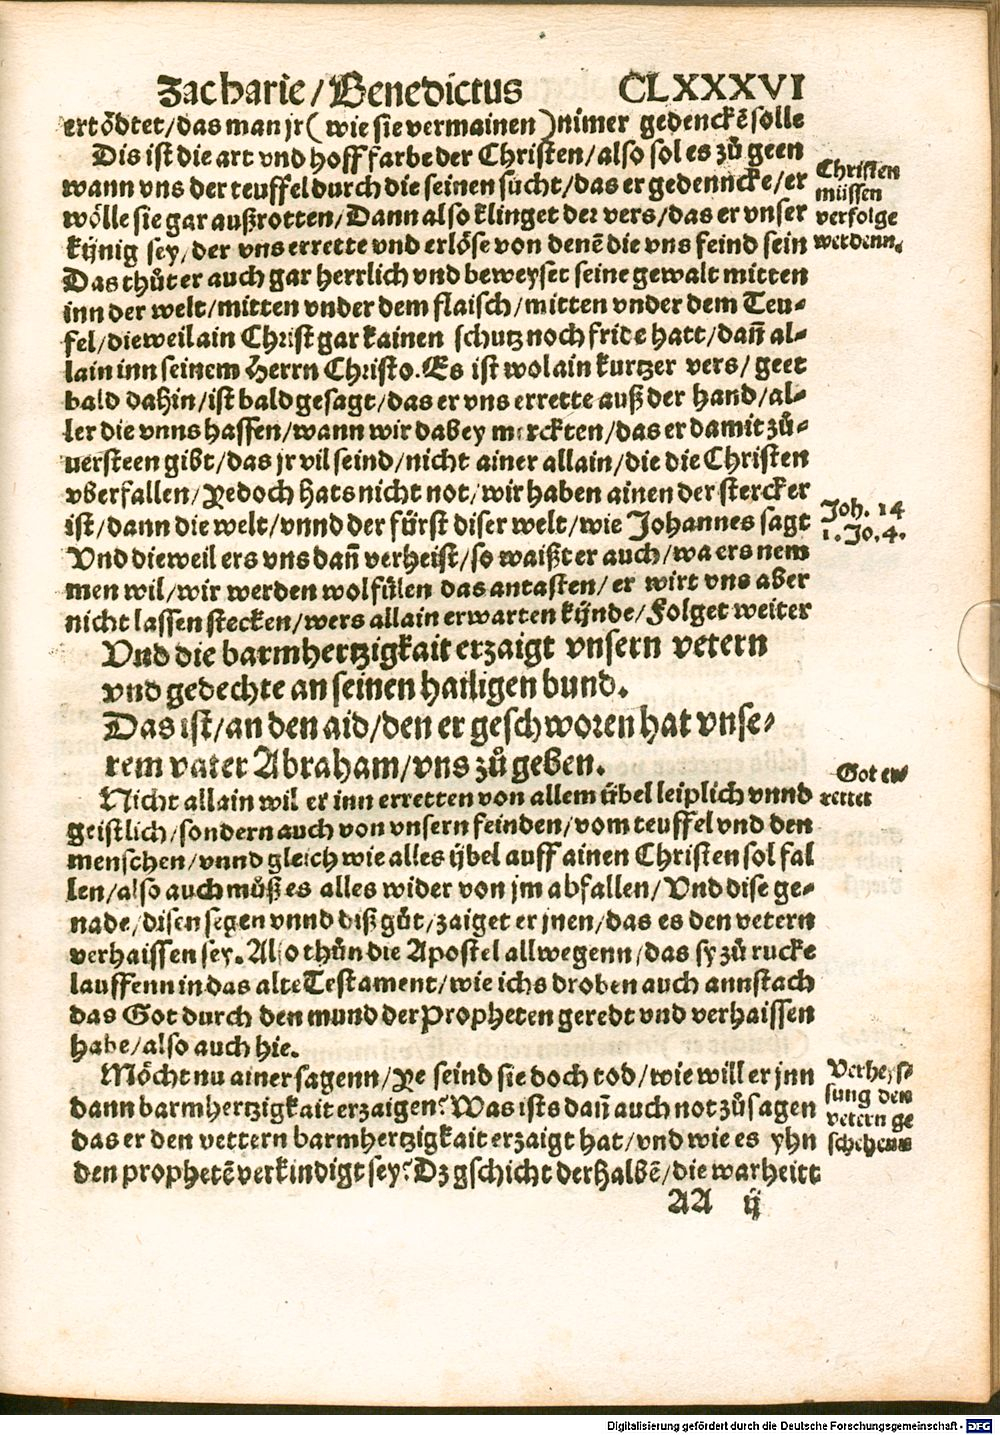 Zacharie/Benedictus CLXXXVI
ertödtet/das man jr (wie sie vermainen) nimer gedenckẽ solle
Dis ist die art vnd hoff farbe der Christen/also sol es zů geen
wann vns der teuffel durch die seinen sücht/das er gedenncke/er
wölle sie gar außrotten/Dann also klinget der vers/das er vnser
kijnig sey/der vns errette vnd erlöse von denẽ die vns feind sein
Das thůt er auch gar herrlich vnd beweyset seine gewalt mitten
inn der welt/mitten vnder dem flaisch/mitten vnder dem Teu-
fel/dieweil ain Christ gar kainen schutz noch fride hatt/dañ al-
lain inn seinem Herrn Christo. Es ist wol ain kurtzer vers/geet
bald dahin/ist bald gesagt/das er vns errette auß der hand/al-
ler die vnns hassen/wann wir dabey merckten/das er damit zů-
uersteen gibt/das jr vil seind/nicht ainer allain/die die Christen
vberfallen/Yedoch hats nicht not/wir haben ainen der stercker
ist/dann die welt/vnnd der fürst diser welt/wie Johannes sagt
Vnd dieweil ers vns dañ verheist/so waißt er auch/wa ers nem
men wil/wir werden wol fülen das antasten/er wirt vns aber
nicht lassen stecken/wers allain erwarten kijnde/Folget weiter
Vnd die barmhertzigkait erzaigt vnsern vetern
vnd gedechte an seinen hailigen bund.
Das ist/an den aid/den er geschworen hat vnse-
rem vater Abraham/vns zů geben.
Nicht allain wil er inn erretten von allem übel leiplich vnnd
geistlich/sondern auch von vnsern feinden/vom teuffel vnd den
menschen/vnnd gleich wie alles ijbel auff ainen Christen sol fal
len/also auch můß es alles wider von jm abfallen/Vnd dise ge-
nade/disen segen vnnd diß gůt/zaiget er jnen/das es den vetern
verhaissen sey. Also thůn die Apostel allwegenn/das sy zů rucke
lauffenn in das alte Testament/wie ichs droben auch annstach
das Got durch den mund der Propheten geredt vnd verhaissen
habe/also auch hie.
Möcht nu ainer sagenn/Ye seind sie doch tod/wie will er jnn
dann barmhertzigkait erzaigen? Was ists dañ auch not zů sagen
das er den vettern barmhertzigkait erzaigt hat/vnd wie es yhn
den prophetẽ verkindigt sey? Dz gschicht der halbẽ/die warheitt
AA ij
Christen
müssen
verfolge
werdenn.
Joh. 14
1. Jo. 4.
Got er
rettet
Verheys-
sung den
vetern ge
schehenn
Digitalisierung gefördert durch die Deutsche Forschungsgemeinschaft - DFG